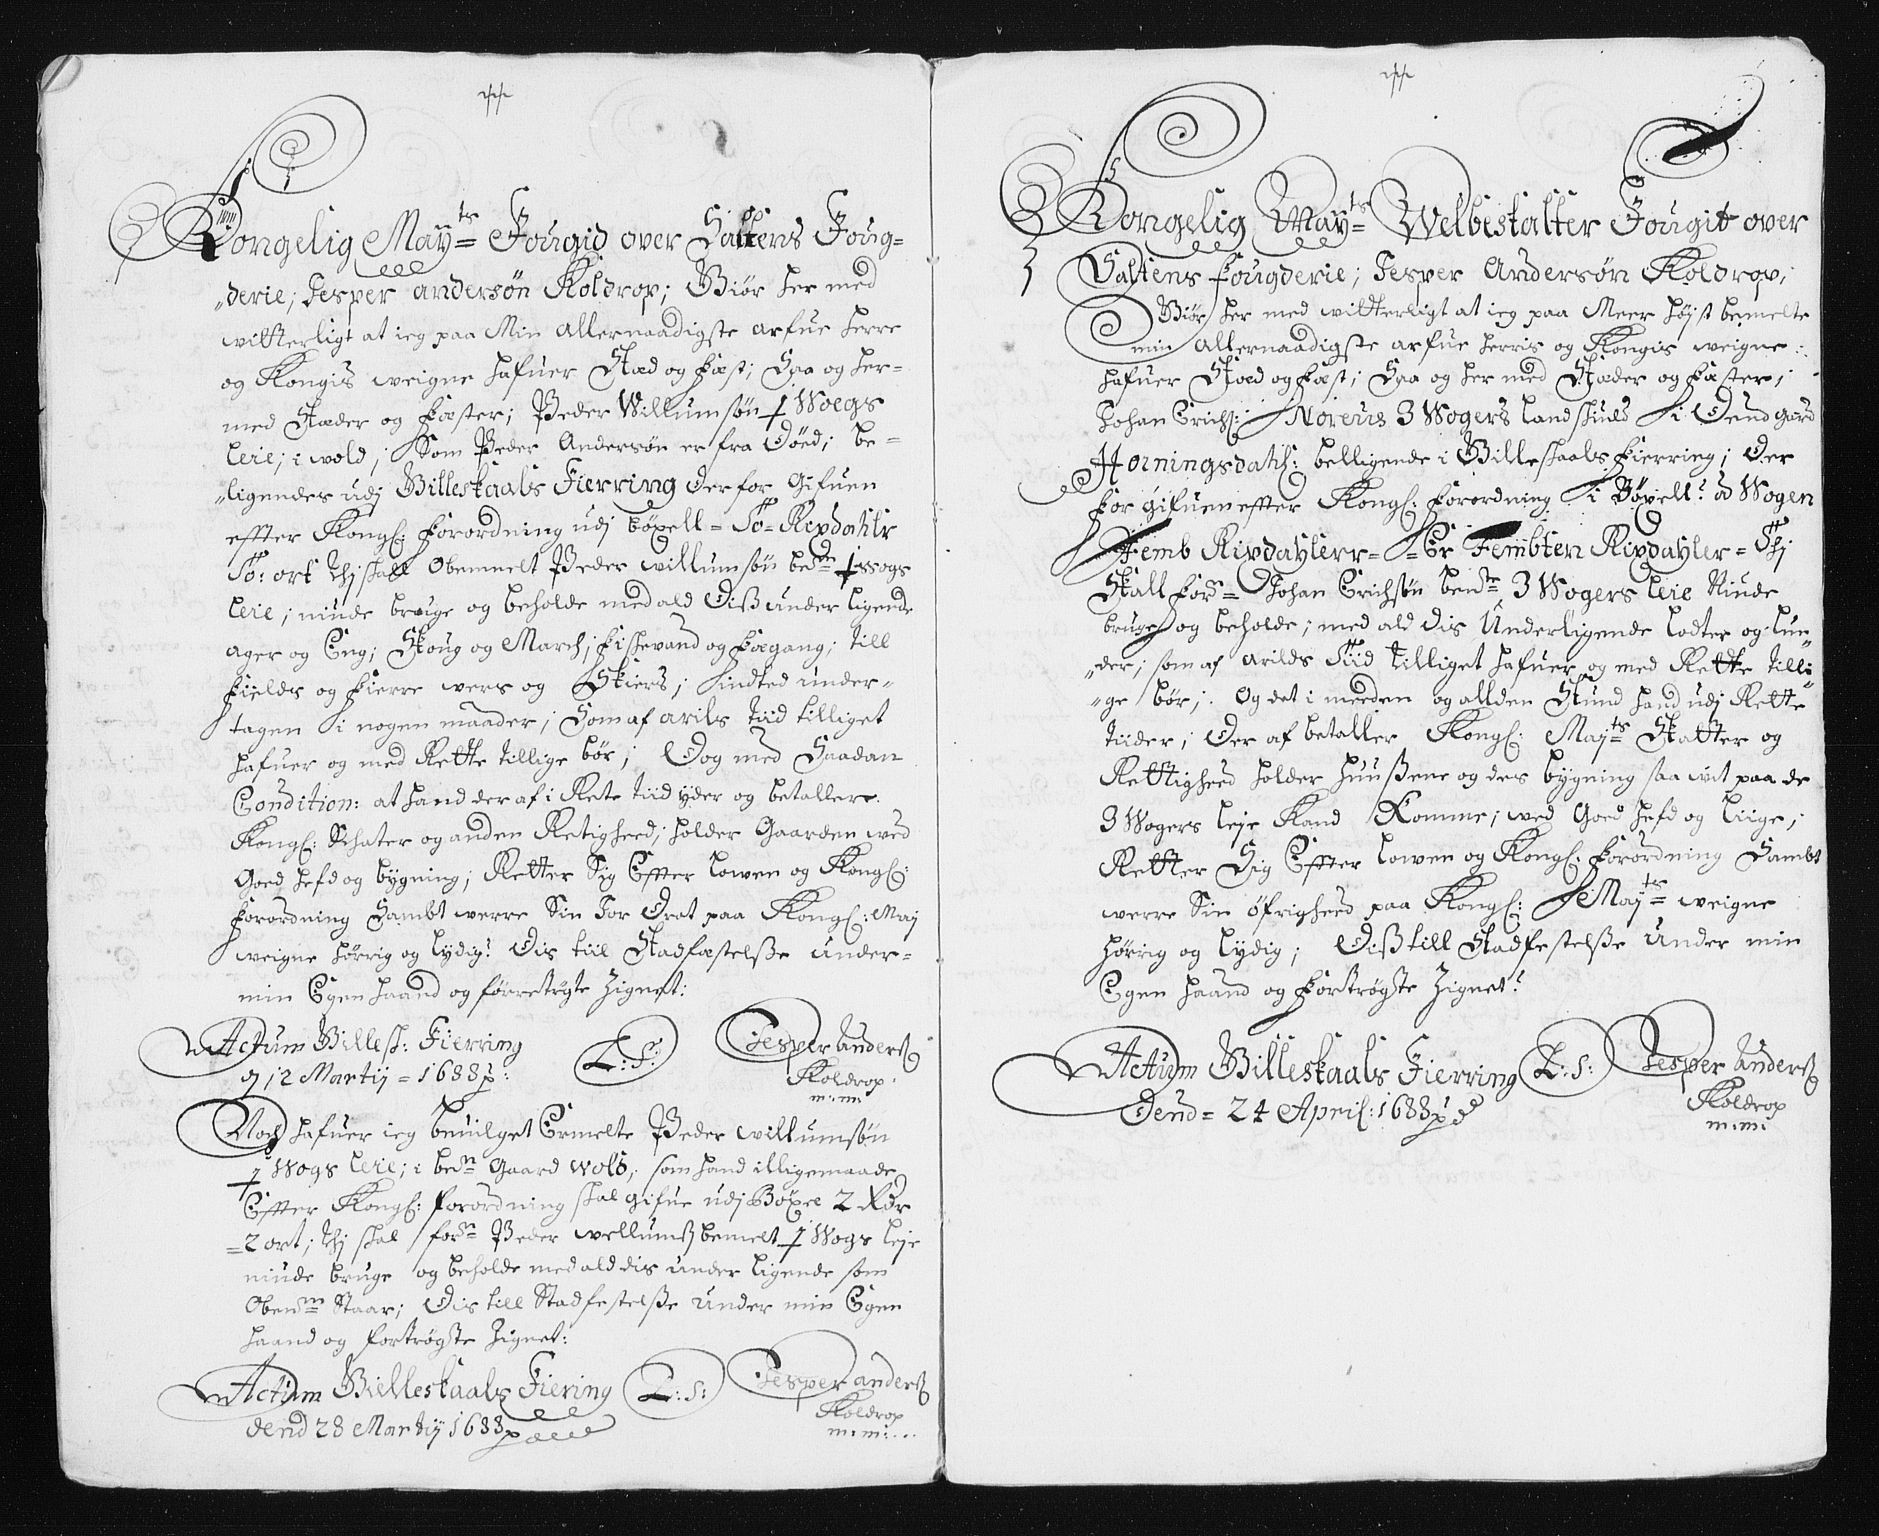 Kongelig May:ts Fougid over Saltens Foug=
derie; Jesper andersøn Koldrop; Giør her med
vitterligt at ieg paa Min allernaadigste arfue herre
og Kongis weigne hafuer Stæd og Fæst; Saa og her=
med Stæder og Fæster; Peder Willumsøn 1 Woegs
leie; i wold; Som Peder Andersøn er fra Døed; be=
ligendes udj Billeskaals Fierring Derfor Gifuen
effter Kongl: Forordning udj bøxell= To= Rixdahlr
To: ort thj skall Obemmelt Peder willumsøn bete 1 wogs
leie; niude bruge og beholde med ald Diß under ligende
ager og Eng; Skoug og March; Fiskevand og Fægang; till
Fields og Fierre wers og Skiers; indted under=
tagen i nogen maader; Som af arils tiid tilliget
hafuer og med Rette tillige bør; Dog med Saadan
Condition: at hand der af i Rete tiid yder og betaller
Kongl: Schater og anden Retigheed; holder Gaarden wed
Goed hefd og bygning; Retter Sig Effter lowen og Kongl:
Forordning Sambt werre Sin For Drat paa Kongl: May
weigne hørrig og lydig: Dis tiil Stadfæstelße under=
min Egen haand og førretrøgte Zignet:
Actum Billesk: Fierring L: S: Jesper anderß
d 12 Martij= 1688 Koldrop
m: m:
Noch hafuer ieg beuilget Ermelte Peder willumsøn
1 Wogs leie; i beme Gaard wold; som hand illigemaade
Effter Kongl: forordning skal gifue udj Bøxel 2 Rdr
=2 ort; thj skal forn Peder wellumß bemelt 1 Wogs leje
niude bruge og beholde med ald dis under ligende som
Obenm Staar; Dis till Stadfestelße under min Egen
haand og fortrøgte Zignet:
Actum Billeskaals Fiering L: S: Jesper anderß
dend 28 Martij 1688 Koldrop
m: m:
Kongelig May:ts Welbestalter Fougit over
Saltens Fougderie; Jesper Andersøn Koldrop;
Giør her med vitterligt at ieg paa Meer høyst bemelte
min allernaadigste arfue herris og Kongis weigne:
hafuer Stæd og Fæst; Saa og her med Stæder og Fæster;
Johan Erichß: Noreus 3 Wogers landskuld i Øend gard
Horningsdahl: belligende i Billeskaals Fierring; Der
For gifuen effter Kongl: Forordning i Bøxell: a Wogen
Femb Rixdahlerr= Er Fembten Rixdahler= Thj
Skall Forn= Johan Erichsøn bemte 3 Wogers leie Niude
bruge og beholde; med ald dis Underligende lodter og lun
der; som af arilds Tiid tilliget hafuer og med Rette tilli
ge bør; Og det i meeden og all den Stund hand udj Rette
tiider; Der af betaller Kongl: May:ts Skatter og
Rettigheed holder huußene og des bygning saa vit paa de
3 Wogers leje Kand Komme; wed Goed hefd og liige;
Retter Sig Effter lowen og Kongl: Forordning Sambt
werre Sin øfrigheed paa Kongl: May:ts weigne
hørrig og lydig; Diß till Stadfestelße under min
Egen haand og Fortrøgte Zignet:
Actum Billeskaals Fierring L: S: Jesper Anderß
Dend= 24 April: 1688 Koldrop
m: m: